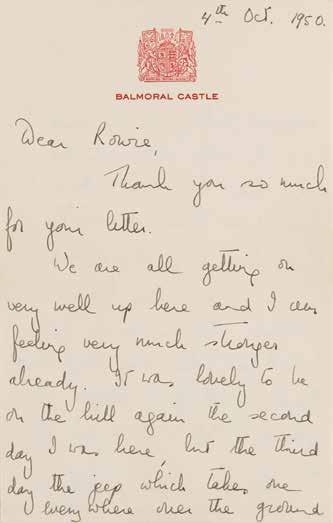 4th Oct. 1950.
BALMORAL CASTLE
Dear Rowie,
Thank you so much
for your letter.
We are all getting on
very well up here and I am
feeling very much stronger
already. It was lovely to be
on the hill again the second
day I was here, but the third
day the jeep which takes one
everywhere over the ground